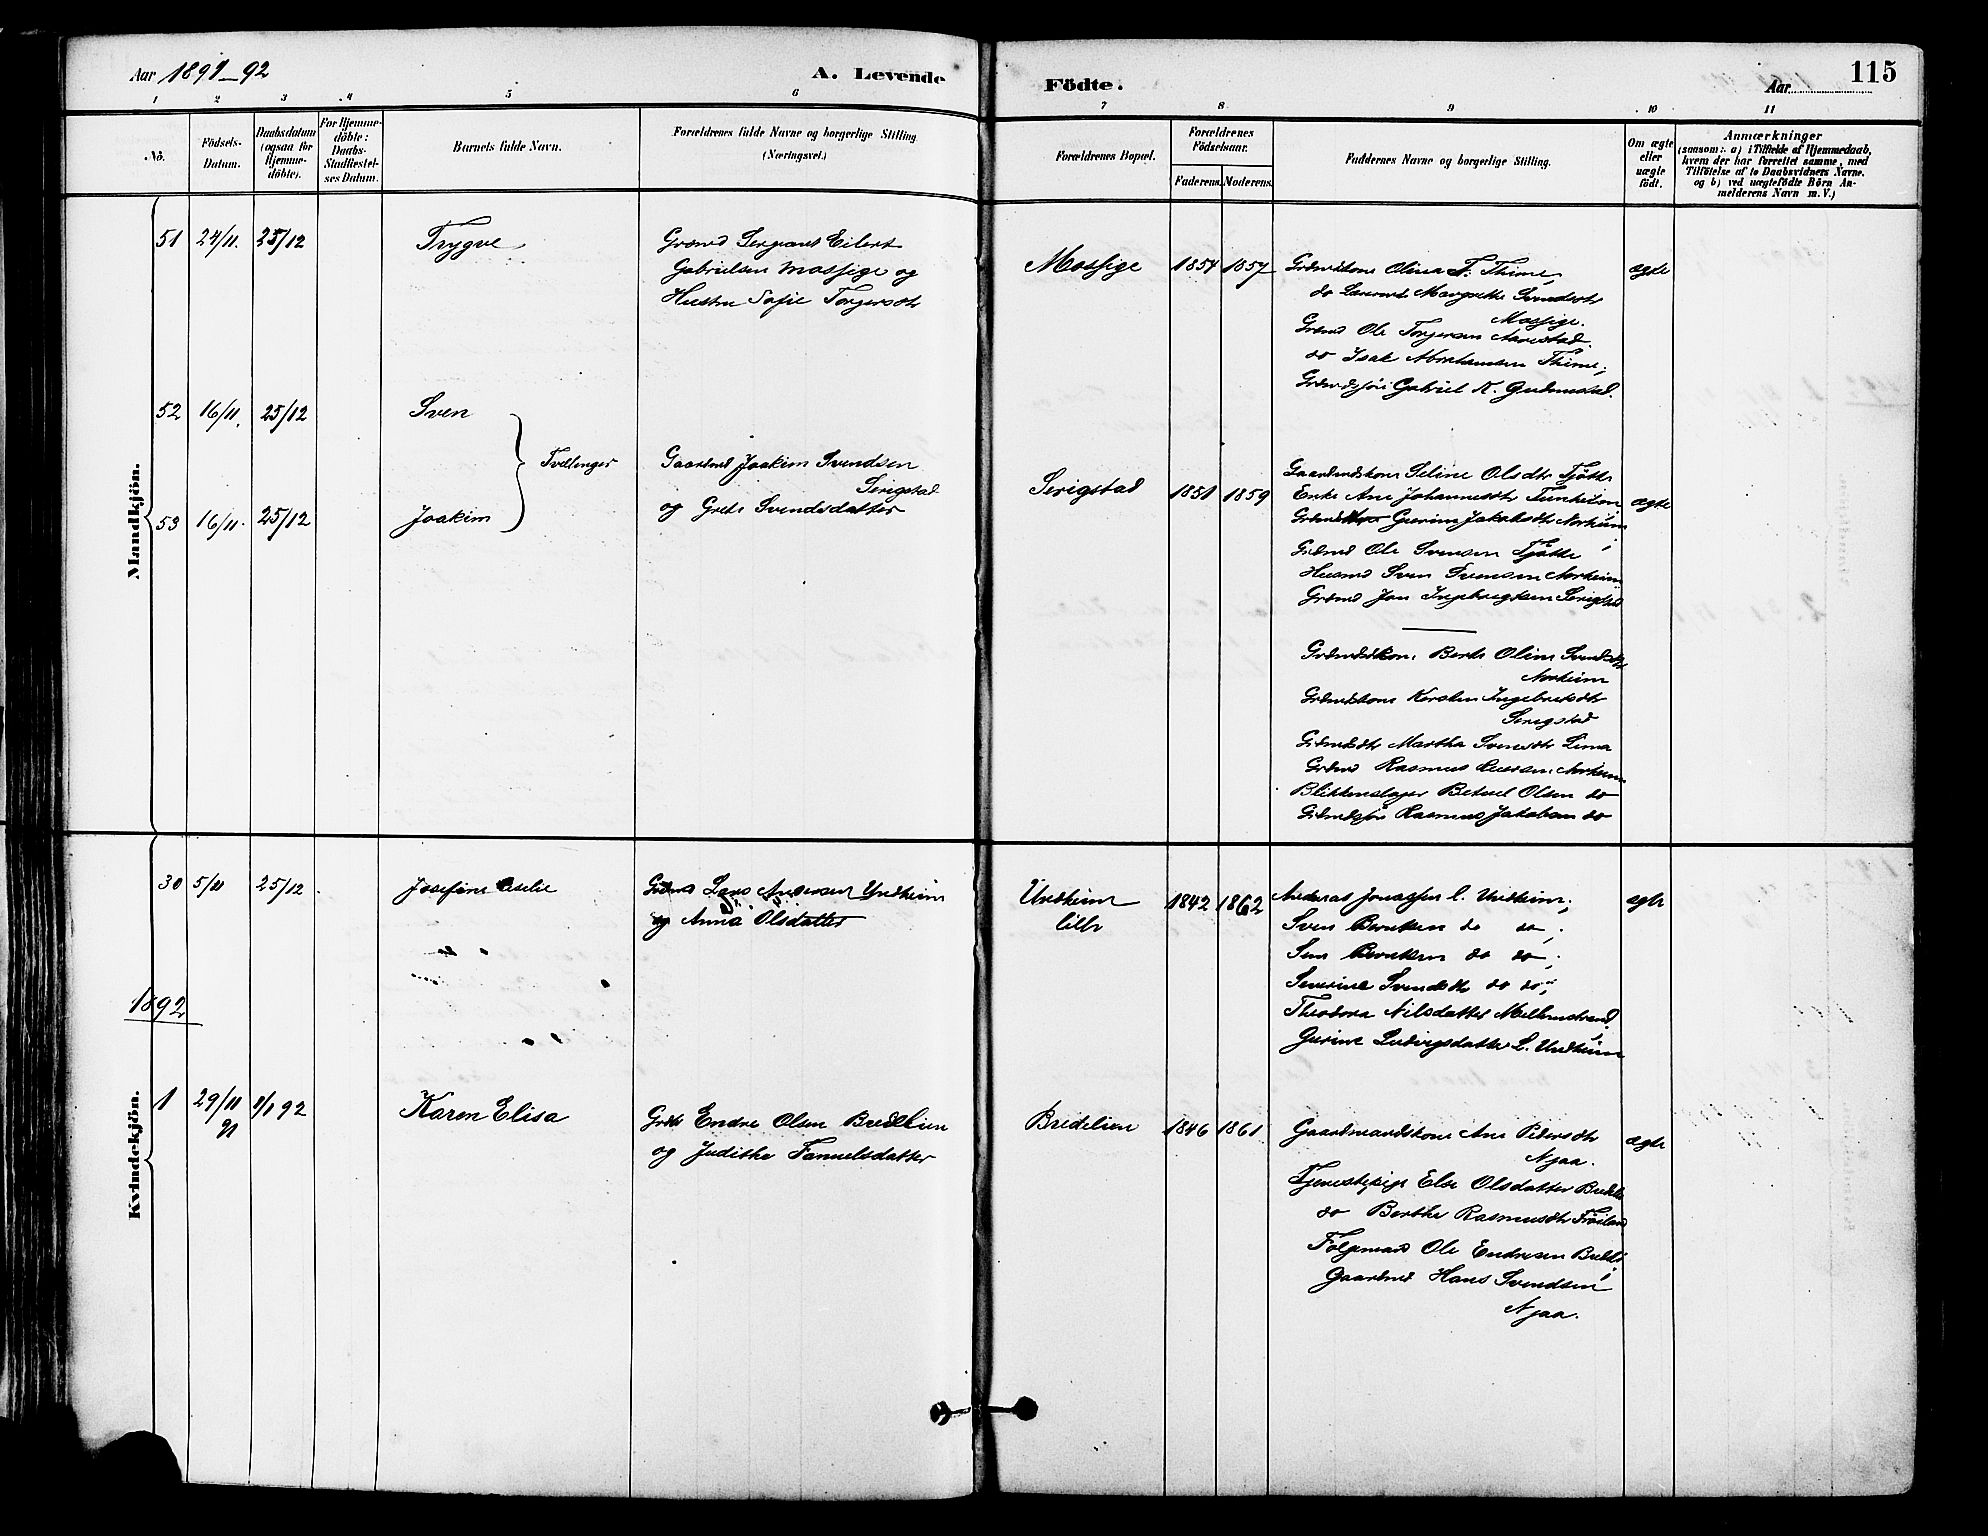 Aar 1891-92
A. Levende
Födte.
Aar
115
1 2 3 4 5 6 7 8 9 10 11
No.
Födsels-
Datum.
Daabsdatum
(ogsaa for
Hjemme-
döbte).
For Hjemme-
döbte:
Daabs-
Stadfæstel-
ses Datum.
Barnets fulde Navn.
Forældrenes fulde Navne og borgerlige Stilling.
(Næringsvei.)
Forældrenes Bopæl.
Forældrenes
Födselsaar.
Faderens.
Moderens.
Faddernes Navne og borgerlige Stilling.
Om ægte
eller
uægte
födt.
Anmærkninger
(saasom: a) i Tilfælde af Hjemmedaab,
hvem der har forrettet samme, med
Tilföielse af to Daabsvidners Navne.
og b) ved uægtefödte Börn An-
melderens Navn m. V.)
Mandkjön.
51 24/11. 25/12
Trygve
Grdmd Sergeant Eilert
Gabrielsen Mossige og
Hustru Sofie Torgersdtr
Mossige
1857 1857
Grdmdskone Olina F. Thime,
do Margrethe Svendsdtr
Mossige.
Grdmd Ole Torgersen Aarestad.
do Isak Abrahamsen Thime,
Gabriel K. Gudmestad.
ægte
52 16/11. 25/12
Sven
53 16/11. 25/12
Joakim
Tvillinger
Gaardmd Joakim Svendsen
Serigstad
og Grete Svendsdatter
Serigstad
1851 1859
Gaardmdskone Seline Olsdtr Tjötte
Enke Ane Johannesdtr Tunheim
Gurine Jakobsdtr Norheim
Grdmd Ole Svensen Tjøtte
Husmd Sven Svensen Norheim
Grdmd Jon Ingebregtsen Serigstad
ægte
Grdmdskone Berte Oline Svendsdtr
Norheim
Grdmdskone Kersten Ingebretsdtr
Serigstad
Grdmdsdtr Martha Svensdtr Lima
Grdmd Rasmus Norheim
Blikkenslager Betuel Olsen do
Rasmus Jakobsen do
Kvindekjön.
30 5/11 25/12.
Josefine Aselie
Grdmd Lars Andersen Undheim
og Anna Olsdatter
Undheim
lille
1842 1862
Anders Jonassen l. Undheim;
Sven Berntsen do do;
Sem Berntsen do do;
Severine Svendsdtr do do;
Theodora Nilsdatter Mellemstrand,
Gurine Ludvigsdatter L. Undheim
ægte
1892
1 29/11 91 8/1 92
Karen Elisa
Grdbr Endre Olsen Bredelien
og Judithe Fanuelsdatter
Bredelien
1846 1861
Gaardmandskone Ane Pedersdtr
Njaa.
Tjenestepige Else Olsdatter Bredeli
do Berthe Rasmusdtr Fröiland
Folgemand Ole Endresen Bredeli
Gaardmd Hans Svendsen
Njaa.
ægte